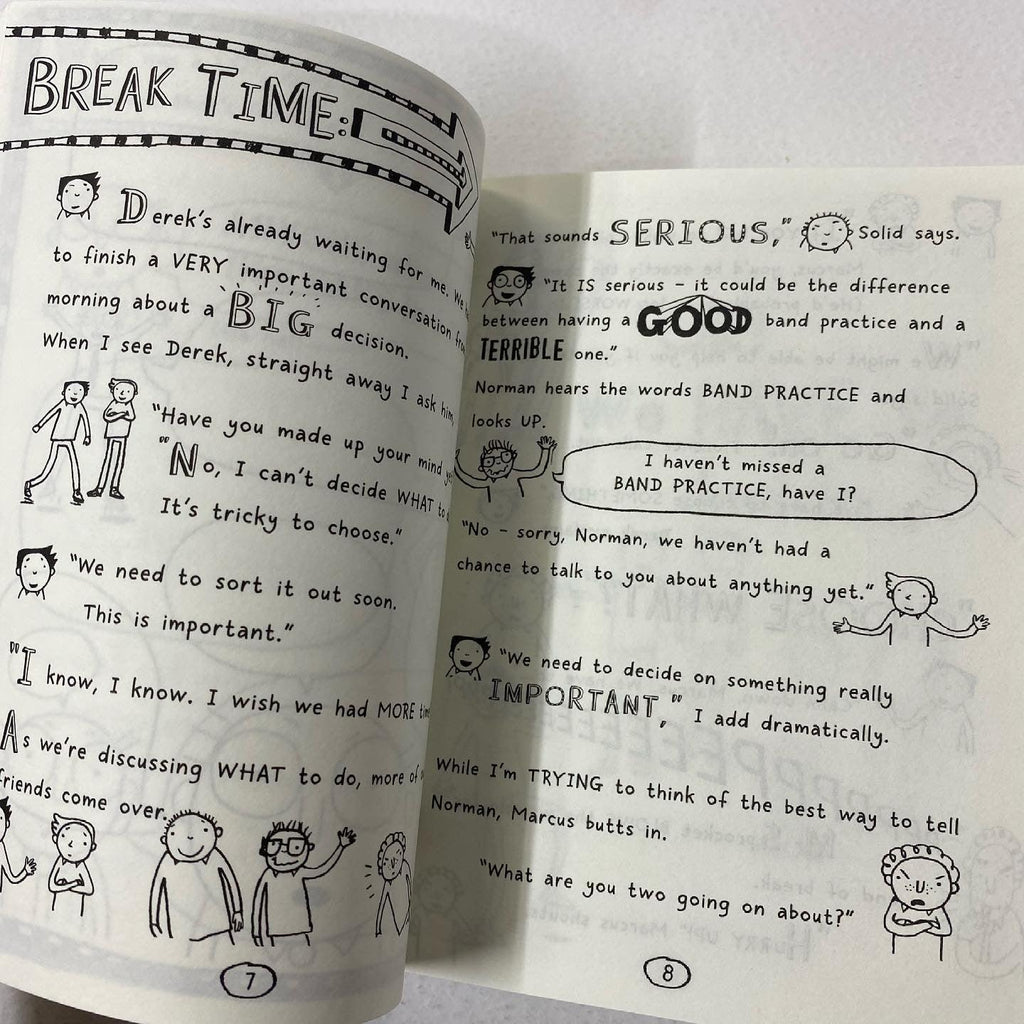 BREAK TIME:
Derek's already waiting for me. We
to finish a VERY important conversation from
morning about a BIG decision.
When I see Derek, straight away I ask him,
"Have you made up your mind
"No, I can't decide WHAT to
It's tricky to choose."
"We need to sort it out soon.
This is important."
"I know, I know. I wish we had MORE
As we're discussing WHAT to do, more of
friends come over.
7
"That sounds SERIOUS," Solid says.
"It IS serious – it could be the difference
between having a GOOD band practice and a
TERRIBLE one."
Norman hears the words BAND PRACTICE and
looks UP.
I haven't missed a
BAND PRACTICE, have I?
"No – sorry, Norman, we haven't had a
chance to talk to you about anything yet."
"We need to decide on something really
IMPORTANT," I add dramatically.
While I'm TRYING to think of the best way to tell
Norman, Marcus butts in.
"What are you two going on about?"
8